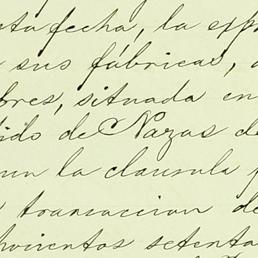 sta fecha, la exp
sus fábricas,
bres, situada en
tido de Nazas de
un la clausula
transaccion de
novecientos setenta